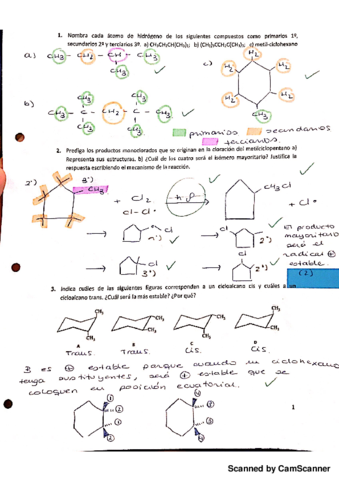 1. Nombra cada átomo de hidrógeno de los siguientes compuestos como primarios 1º,
secundarios 2º y terciarios 3º. a) CH₃CH₂CH(CH₃)₂ b) (CH₃)₃CCH₂C(CH₃)₃ c) metil-ciclohexano
a) CH₃ - CH₂ - CH - CH₃
CH₃
c)
H₂
CH₃
b) CH₃ CH₃
CH₃ - C - CH₂ - C - CH₃
CH₃ CH₃
primarios secundarios
terciarios
2. Prediga los productos monoclorados que se originan en la cloración del mesiciclopentano a)
Representa sus estructuras. b) ¿Cuál de los cuatro será el isómero mayoritario? Justifica la
respuesta escribiendo el mecanismo de la reacción.
CH₃ + Cl₂ CH₂Cl
Cl-Cl + Cl
El producto
mayoritario
será el
radical
estable
(2)
3. Indica cuáles de las siguientes figuras corresponden a un cicloalcano cis y cuáles a un
cicloalcano trans. ¿Cuál será la más estable? ¿Por qué?
CH₃ CH₃ CH₃ CH₃
A B C D
Trans. Trans. Cis. Cis.
B es + estable porque cuando un ciclohexano
tenga sustituyentes, será + estable que se
coloquen en posición ecuatorial.
1
Scanned by CamScanner